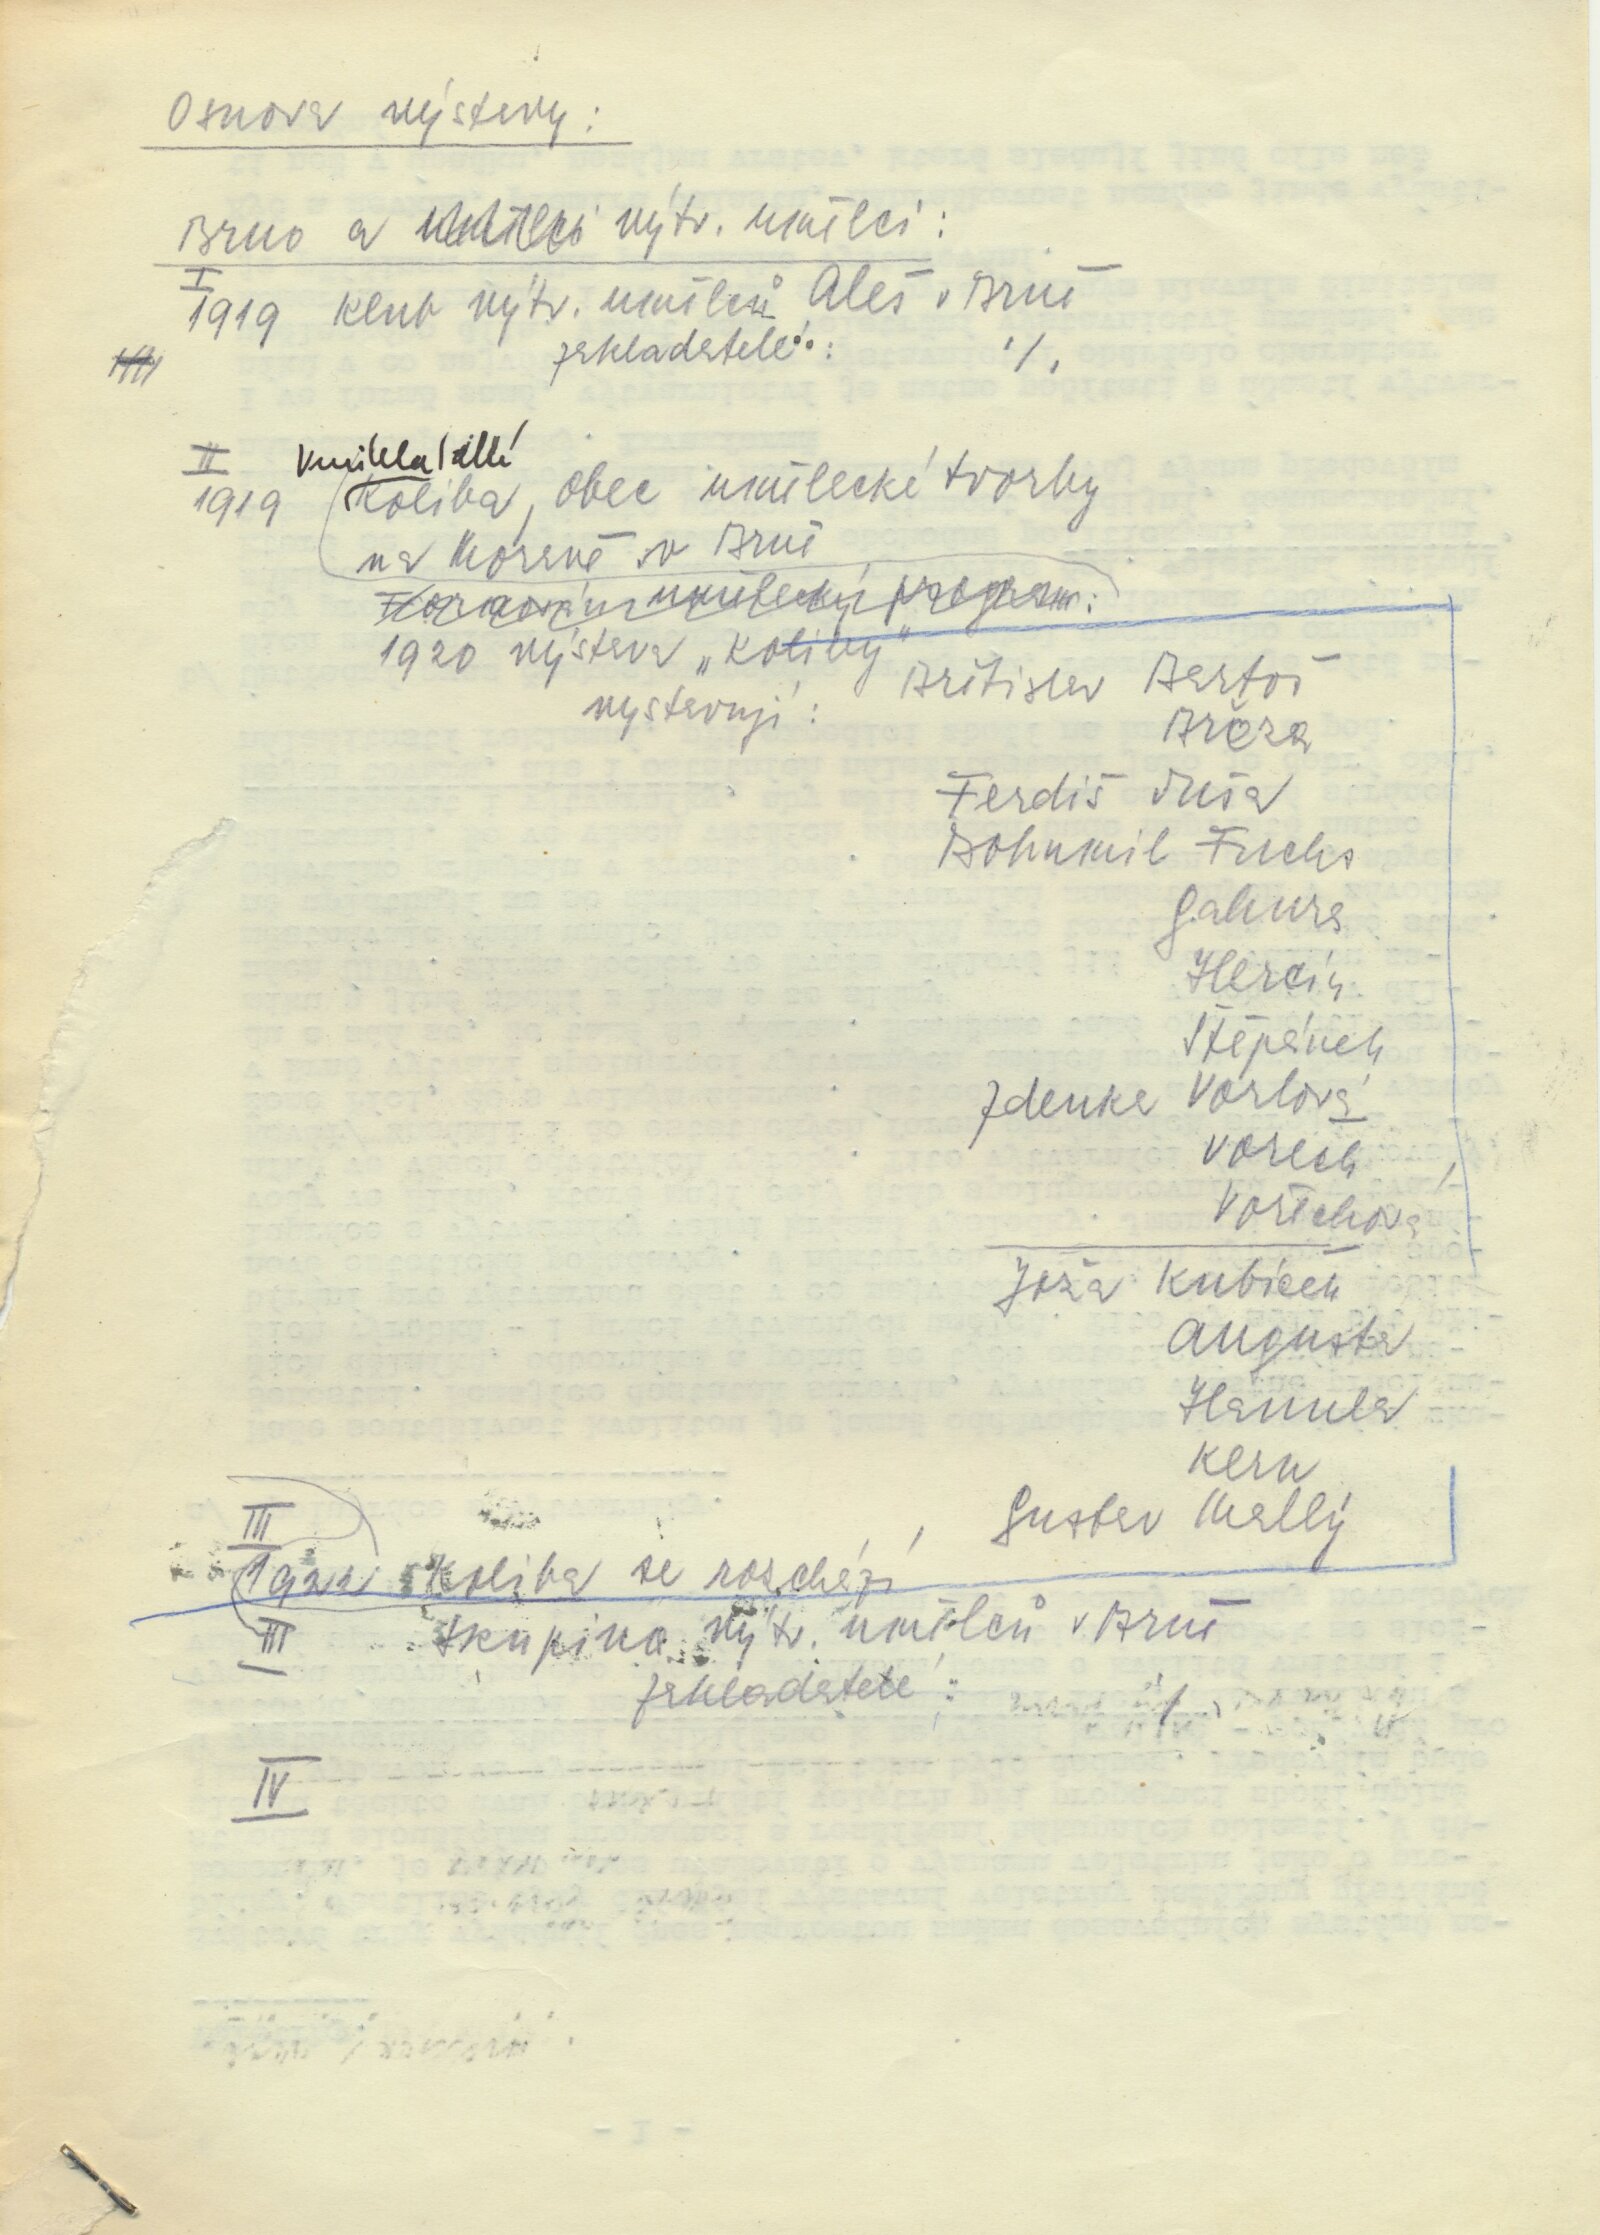 Osnova výstavy:
Brno a umělci výtv. umělci:
I
1919 Klub výtv. umělců Aleš v Brně
zakladatelé: ./.
II vznikla
1919 Koliba, obec umělecké tvorby
na Moravě v Brně
umělecký program:
1920 výstava „Koliby"
vystavují: Břetislav Bartoš
Bröza
Ferdiš Duša
Bohumil Fuchs
Gahura
Hercín
Štěpánek
Zdenka Vorlová
Vorech
Vořechová
Joža Kubíček
Augusta
Hanula
Kern
Gustav Mallý
III
1922 Koliba se rozchází
III Skupina výtv. umělců v Brně
zakladatelé: ./.
IV